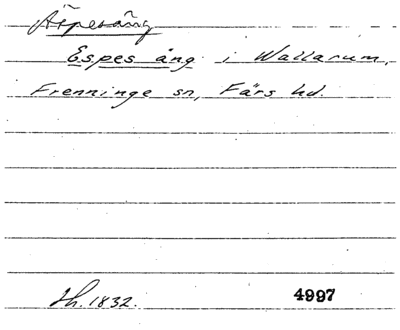 Äspesäng
Espes äng i Wallarum,
Frenninge sn, Färs hd.
Th. 1832. 4997